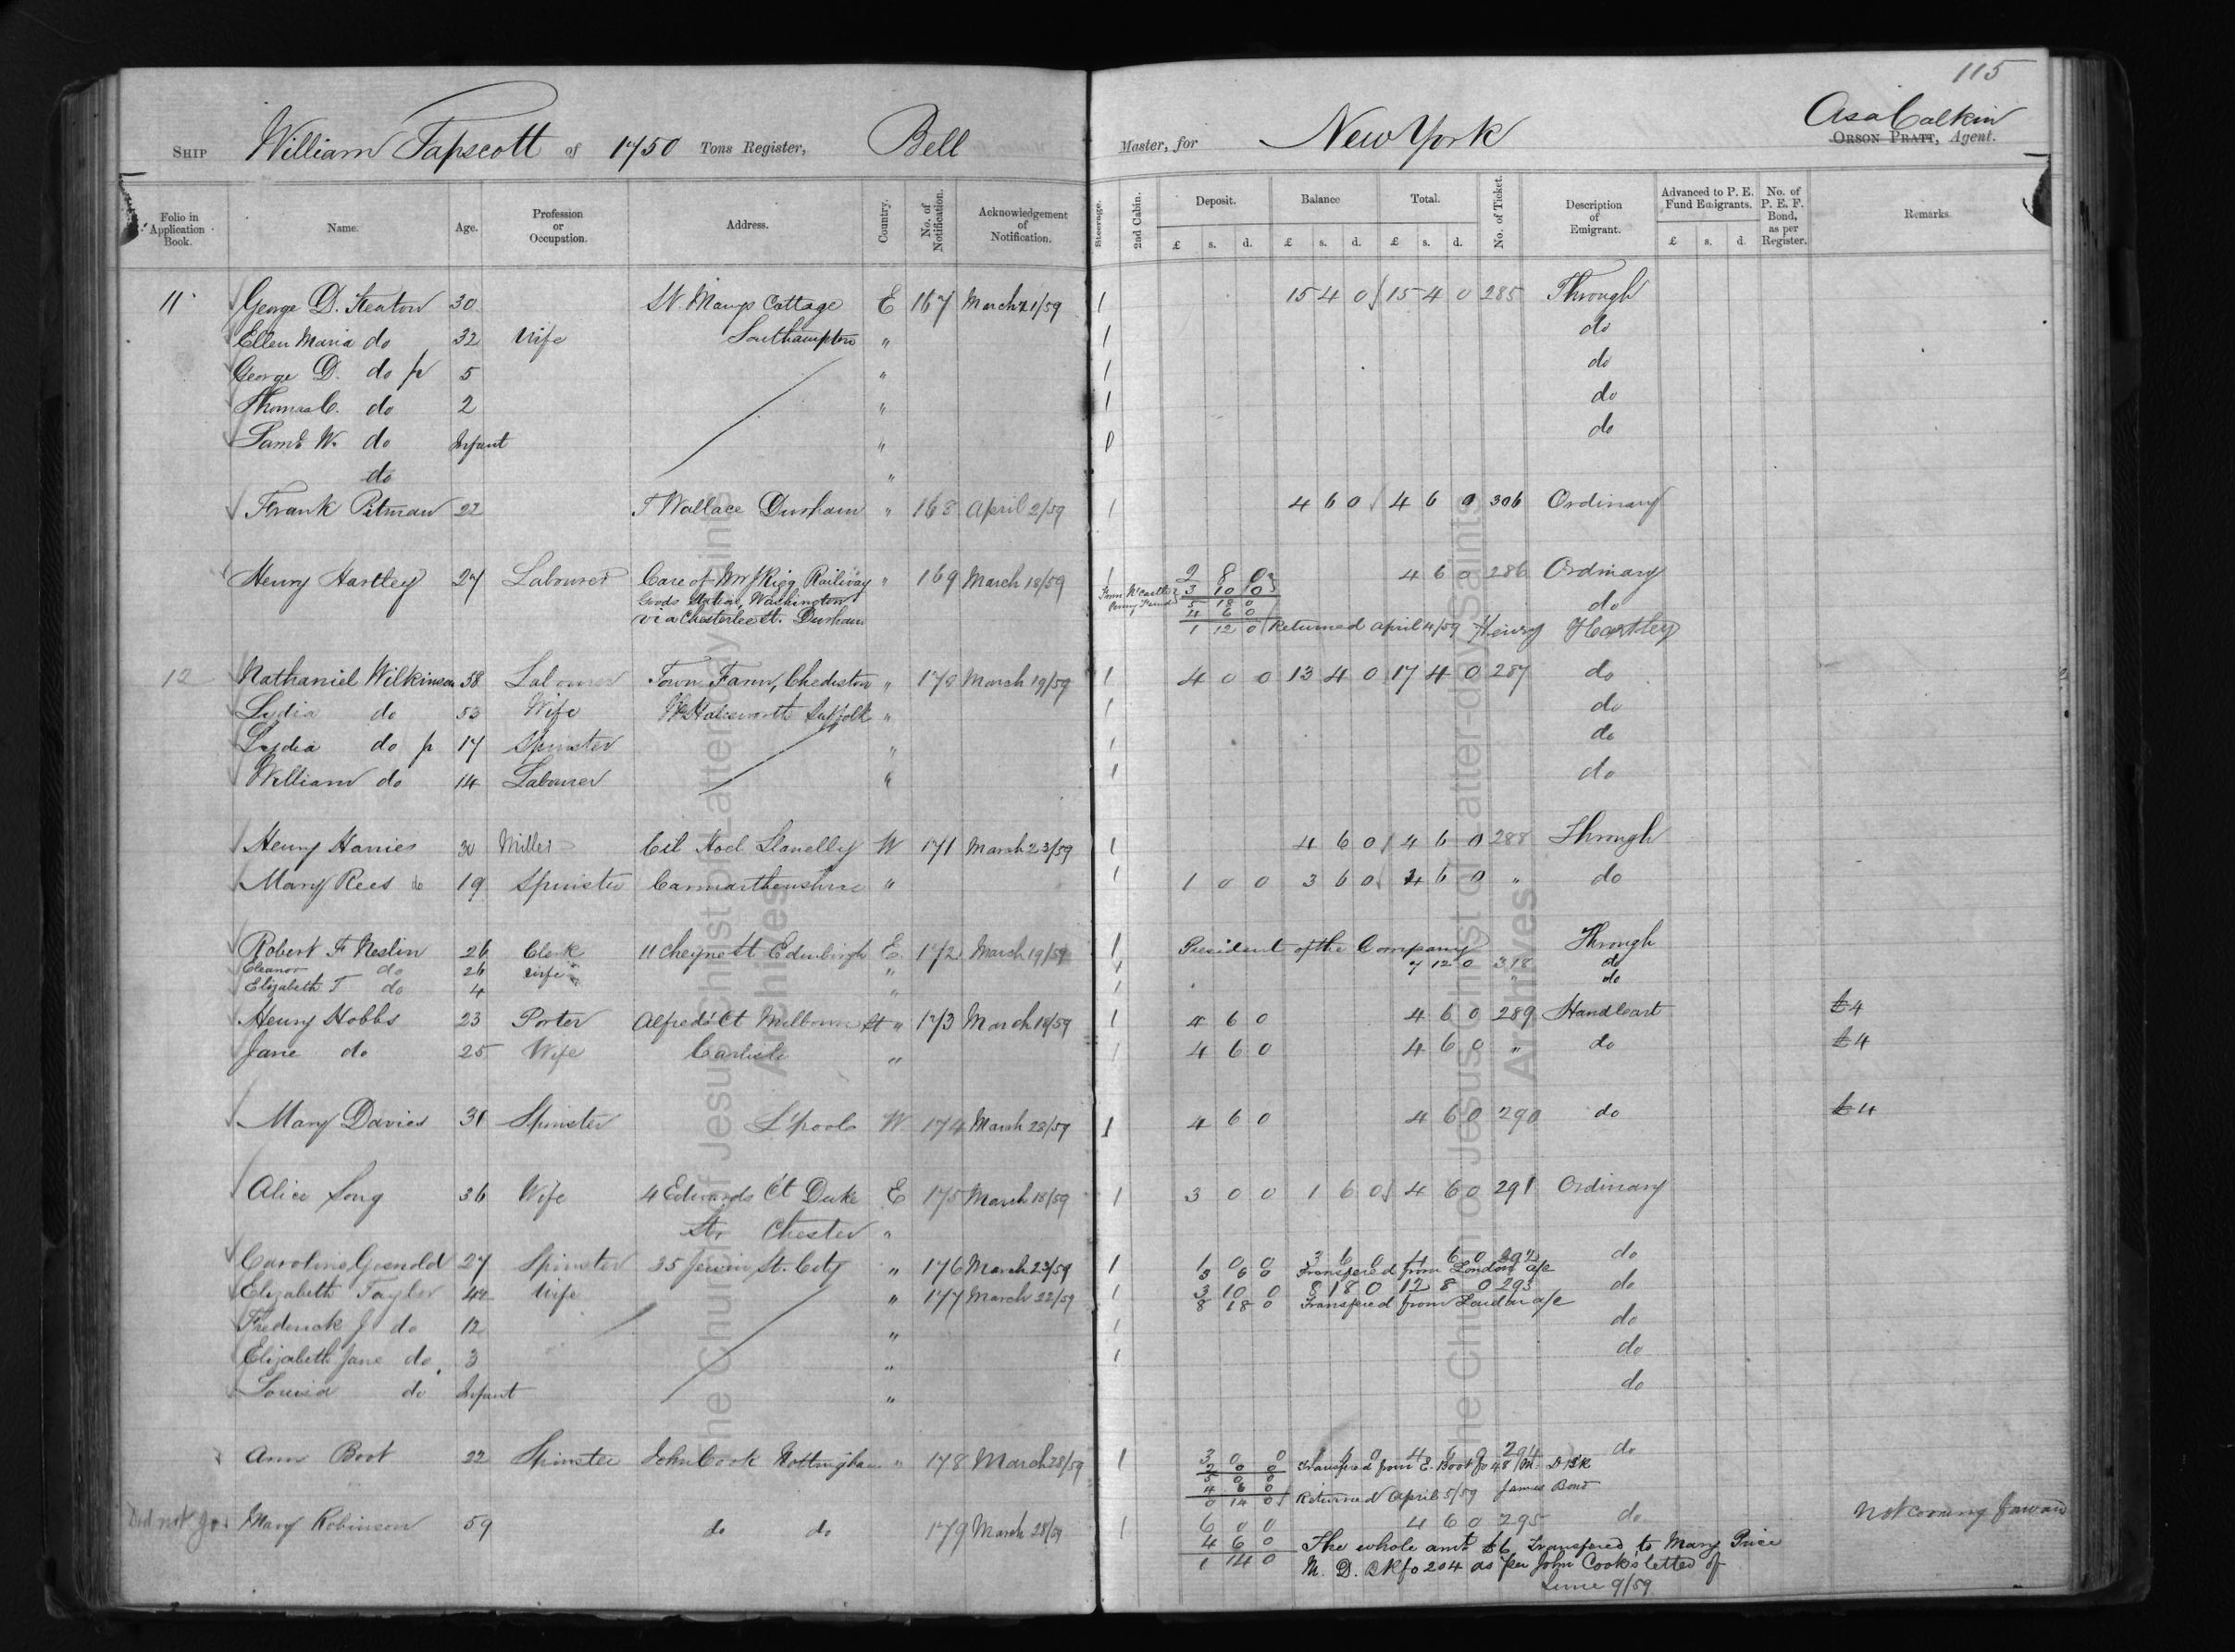 115
Asa Calkin
SHIP William Tapscott of 1750 Tons Register, Bell Master, for New York ORSON PRATT, Agent.
Folio in Application Book. Name. Age. Profession or Occupation. Address. Country. No. of Notification. Acknowledgement of Notification. Steerage. 2nd Cabin. Deposit. Balance Total. No. of Ticket. Description of Emigrant. Advanced to P. E. Fund Emigrants. No. of P. E. F. Bond, as per Register. Remarks.
£ s. d. £ s. d. £ s. d. £ s. d.
11 George D. Keaton 30 St. Marys Cottage E 167 March 21/59 1 15 4 0 15 4 0 285 Through
Ellen Maria do 32 Wife Southampton " 1 do
George D. do jr 5 " 1 do
Thomas C. do 2 " 1 do
Saml W. do Infant " do
do "
Frank Pitman 22 T Wallace Durham " 168 April 2/59 1 4 6 0 4 6 0 306 Ordinary
Henry Hartley 27 Labourer Care of Mr J Rigg Railway " 169 March 18/59 1 2 8 0 4 6 0 286 Ordinary
Goods Station, Washington 3 10 0 do
via Chesterlee St. Durham 5 18 0
4 6 0
1 12 0 Returned April 4/59 Henry Hartley
12 Nathaniel Wilkinson 58 Labourer Town Farm, Chediston " 170 March 19/59 1 4 0 0 13 4 0 17 4 0 287 do
Lydia do 53 Wife Halesworth Suffolk " 1 do
Lydia do jr 17 Spinster " 1 do
William do 14 Labourer " 1 do
Henry Harries 30 Miller Llanelly W 171 March 23/59 1 4 6 0 4 6 0 288 Through
Mary Rees do 19 Spinster Carmarthenshire " 1 1 0 0 3 6 0 4 6 0 " do
Robert F Neslin 26 Clerk 11 Cheyne St Edinburgh E 172 March 19/59 1 President of the Company Through
Eleanor do 26 Wife " 1 7 12 0 318 do
Elizabeth T do 4 " 1 " do
Henry Hobbs 23 Porter Alfreds Ct Milbourn St " 173 March 18/59 1 4 6 0 4 6 0 289 Handcart £4
Jane do 25 Wife Carlisle " 1 4 6 0 4 6 0 " do £4
Mary Davies 31 Spinster L'pool W 174 March 28/59 1 4 6 0 4 6 0 290 do £4
Alice Long 36 Wife 4 Edwards Ct Duke E 175 March 18/59 1 3 0 0 1 6 0 4 6 0 291 Ordinary
Str Chester "
Caroline 27 Spinster 35 Jewin St. City " 176 March 23/59 1 1 0 0 3 6 0 4 6 0 292 do
3 6 0 Transfered from London a/c
Elizabeth Taylor 44 Wife " 177 March 22/59 1 3 10 0 8 18 0 12 8 0 293 do
8 18 0 Transfered from London a/c
Frederick J do 12 " 1 do
Elizabeth Jane do 3 " 1 do
Louisa do Infant " do
Ann Boot 22 Spinster John Cook Nottingham " 178 March 28/59 1 3 0 0 1 6 0 4 6 0 294 do
2 0 0 Transfered from E. Boot fo 48 M. D Bk
5 0 0
4 6 0
0 14 0 Returned April 5/59 James Bond
Did not go Mary Robinson 59 do do 179 March 28/59 1 6 0 0 4 6 0 295 do Not coming forward
4 6 0 The whole amt £6 transfered to Mary Price
1 14 0 M. D. Bk fo 204 as per John Cook's letter of
June 9/59
The Church of Jesus Christ of Latter-day Saints
Archives
The Church of Jesus Christ of Latter-day Saints
Archives